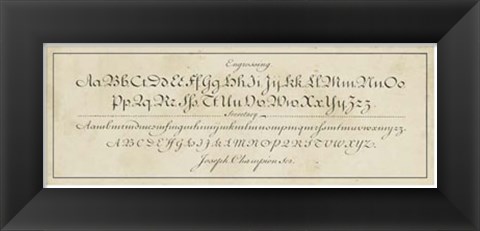 Engrossing
Aa Bb Cc Dd Ee Ff Gg Hh Ii Jj Kk Ll Mm Nn Oo
Pp Qq Rr Ss Tt Uu Vv Ww Xx Yy Zz
Secretary
ABCDEFGHIJKLMNOPQRSTVWXYZ
Joseph Champion Scr.